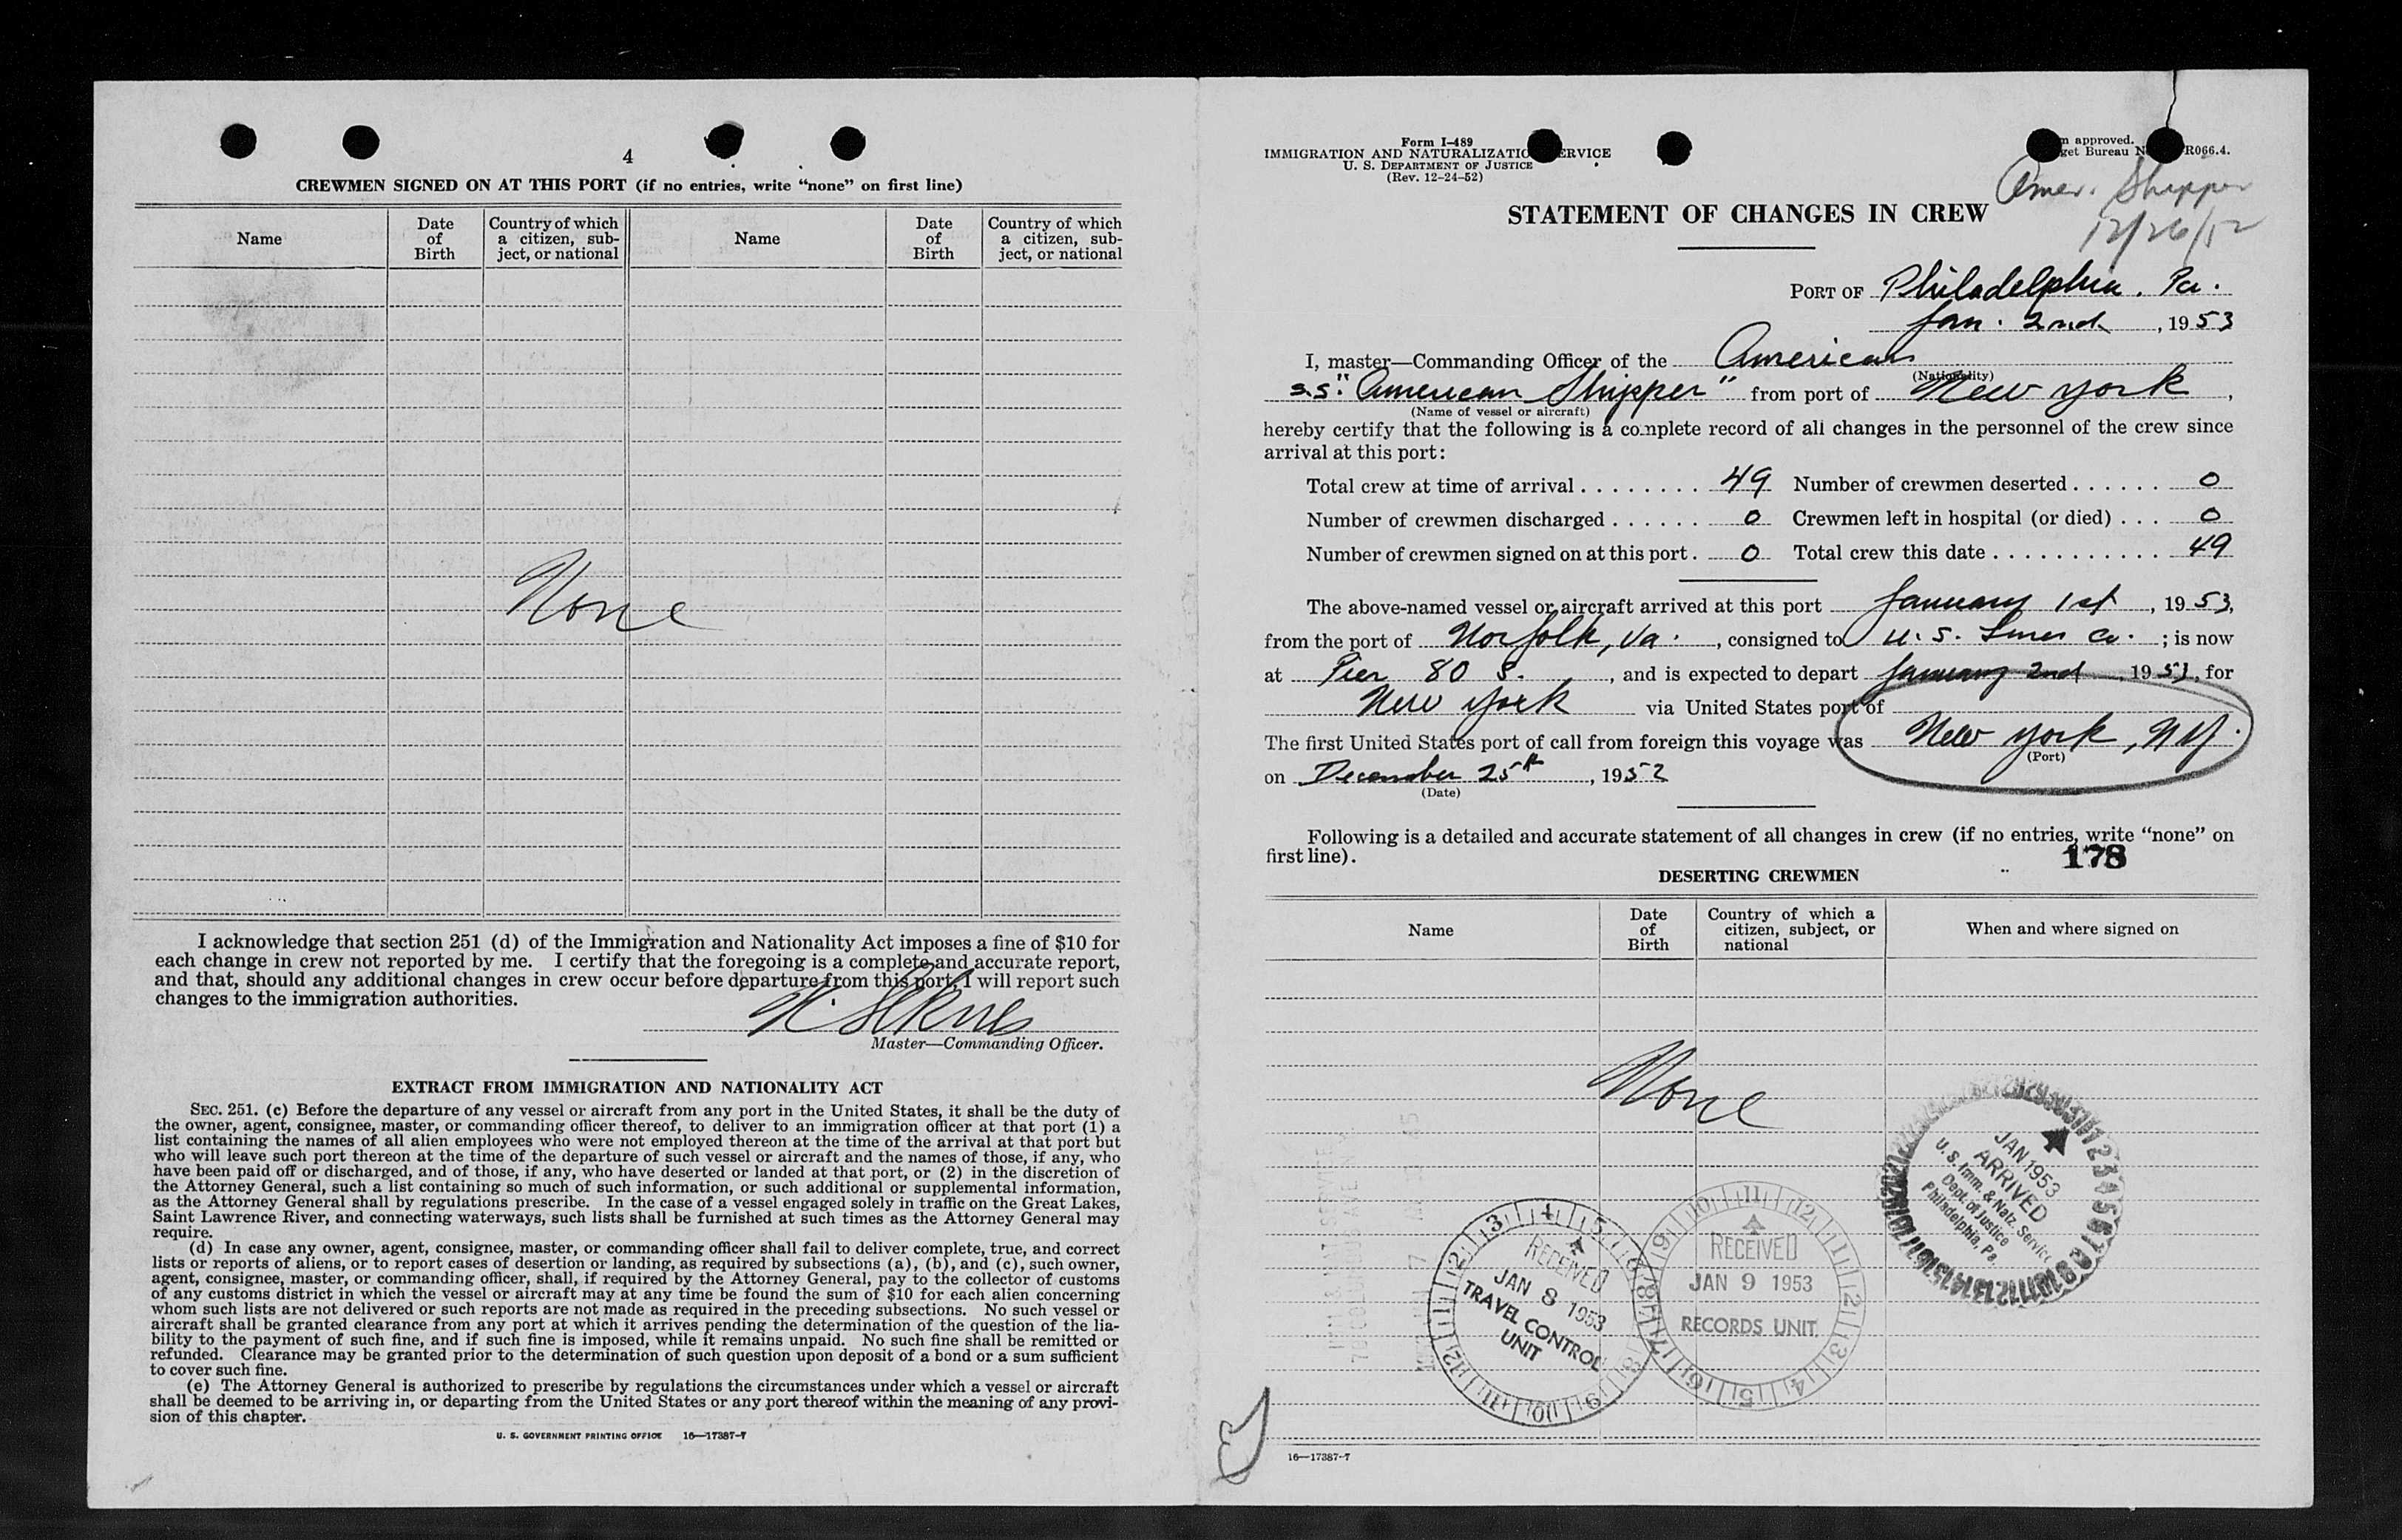 4
CREWMEN SIGNED ON AT THIS PORT (if no entries, write “none” on first line)
Name
Date of Birth
Country of which a citizen, subject, or national
Name
Date of Birth
Country of which a citizen, subject, or national
None
I acknowledge that section 251 (d) of the Immigration and Nationality Act imposes a fine of $10 for
each change in crew not reported by me. I certify that the foregoing is a complete and accurate report,
and that, should any additional changes in crew occur before departure from this port, I will report such
changes to the immigration authorities.
Master—Commanding Officer.
EXTRACT FROM IMMIGRATION AND NATIONALITY ACT
SEC. 251. (c) Before the departure of any vessel or aircraft from any port in the United States, it shall be the duty of
the owner, agent, consignee, master, or commanding officer thereof, to deliver to an immigration officer at that port (1) a
list containing the names of all alien employees who were not employed thereon at the time of the arrival at that port but
who will leave such port thereon at the time of the departure of such vessel or aircraft and the names of those, if any, who
have been paid off or discharged, and of those, if any, who have deserted or landed at that port, or (2) in the discretion of
the Attorney General, such a list containing so much of such information, or such additional or supplemental information,
as the Attorney General shall by regulations prescribe. In the case of a vessel engaged solely in traffic on the Great Lakes,
Saint Lawrence River, and connecting waterways, such lists shall be furnished at such times as the Attorney General may
require.
(d) In case any owner, agent, consignee, master, or commanding officer shall fail to deliver complete, true, and correct
lists or reports of aliens, or to report cases of desertion or landing, as required by subsections (a), (b), and (c), such owner,
agent, consignee, master, or commanding officer, shall, if required by the Attorney General, pay to the collector of customs
of any customs district in which the vessel or aircraft may at any time be found the sum of $10 for each alien concerning
whom such lists are not delivered or such reports are not made as required in the preceding subsections. No such vessel or
aircraft shall be granted clearance from any port at which it arrives pending the determination of the question of the lia-
bility to the payment of such fine, and if such fine is imposed, while it remains unpaid. No such fine shall be remitted or
refunded. Clearance may be granted prior to the determination of such question upon deposit of a bond or a sum sufficient
to cover such fine.
(e) The Attorney General is authorized to prescribe by regulations the circumstances under which a vessel or aircraft
shall be deemed to be arriving in, or departing from the United States or any port thereof within the meaning of any provi-
sion of this chapter.
U. S. GOVERNMENT PRINTING OFFICE 16—17387-7
Form I-489
IMMIGRATION AND NATURALIZATIO ERVICE
U. S. DEPARTMENT OF JUSTICE
(Rev. 12-24-52)
m approved.
get Bureau N R066.4.
Amer. Shipper
12/26/52
STATEMENT OF CHANGES IN CREW
PORT OF Philadelphia. Pa.
Jan. 2nd, 1953
I, master—Commanding Officer of the American
(Nationality)
s.s. "American Shipper" from port of New York,
(Name of vessel or aircraft)
hereby certify that the following is a complete record of all changes in the personnel of the crew since
arrival at this port:
Total crew at time of arrival 49 Number of crewmen deserted 0
Number of crewmen discharged 0 Crewmen left in hospital (or died) 0
Number of crewmen signed on at this port. 0 Total crew this date 49
The above-named vessel or aircraft arrived at this port January 1st, 1953,
from the port of Norfolk, Va., consigned to U. S. Lines Co.; is now
at Pier 80 S., and is expected to depart January 2nd, 1953, for
New York via United States port of
The first United States port of call from foreign this voyage was New York, N.Y.
(Port)
on December 25th, 1952
(Date)
Following is a detailed and accurate statement of all changes in crew (if no entries, write “none” on
first line).
178
DESERTING CREWMEN
Name
Date of Birth
Country of which a citizen, subject, or national
When and where signed on
None
JAN 1953
ARRIVED
U. S. Imm. & Natz. Service
Dept. of Justice
Philadelphia, Pa.
RECEIVED
JAN 8 1953
TRAVEL CONTROL
UNIT
RECEIVED
JAN 9 1953
RECORDS UNIT
16—17387-7